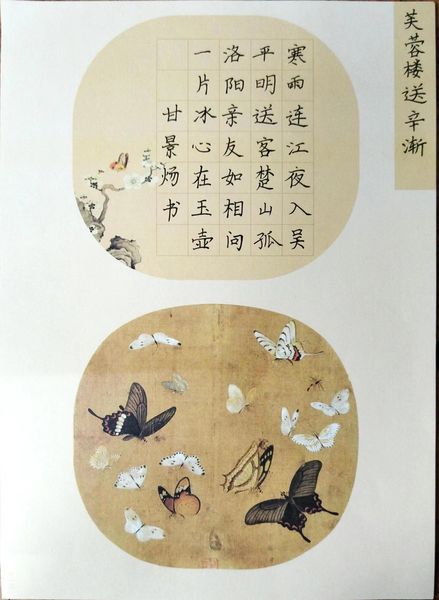 芙蓉楼送辛渐
寒雨连江夜入吴
平明送客楚山孤
洛阳亲友如相问
一片冰心在玉壶
甘景炀书